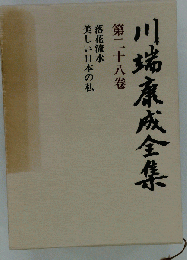 川端康成全集
第二十八巻
落花流水
美しい日本の私